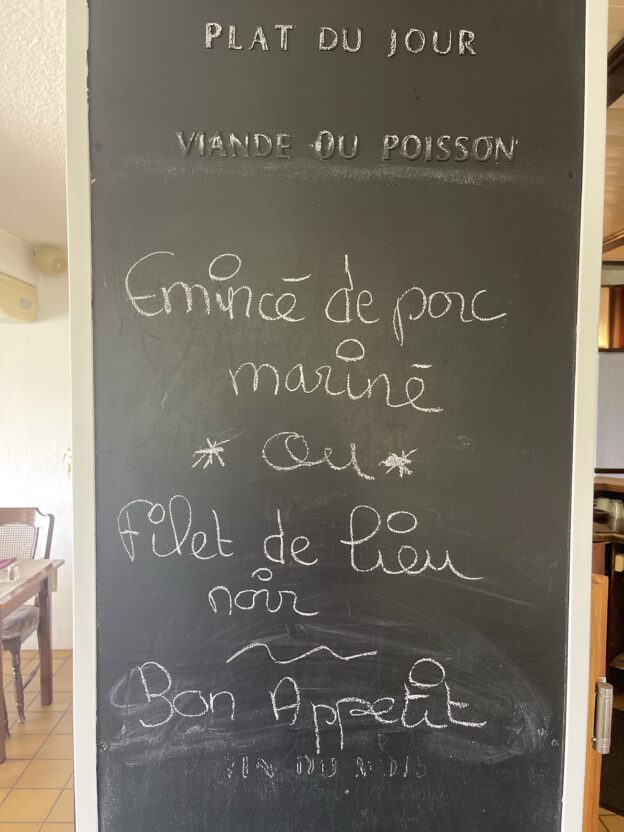 PLAT DU JOUR
VIANDE OU POISSON
Emincé de porc
mariné
* Ou *
Filet de lieu
noir
Bon Appetit